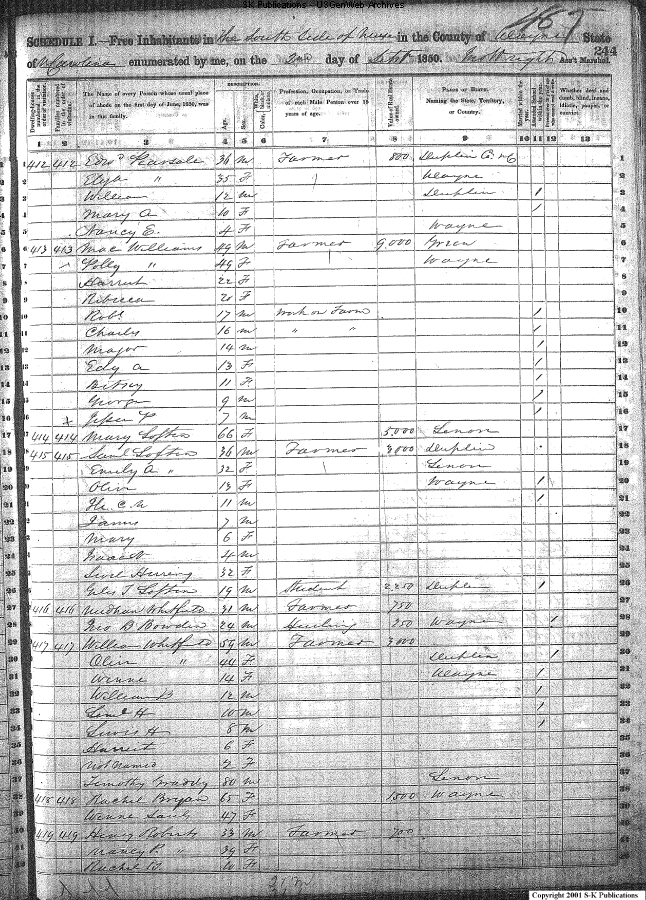 S-K Publications - USGenWeb Archives
467
SCHEDULE I.—Free Inhabitants in the South Side of Neuse in the County of Wayne State
of N Carolina enumerated by me, on the 2nd day of Sept 1850. Ass't Marshal. 244
Dwelling-houses numbered in the order of visitation. Families numbered in the order of visitation. The Name of every Person whose usual place of abode on the first day of June, 1850, was in this family. DESCRIPTION. Age. Sex. Profession, Occupation, or Trade of each Male Person over 15 years of age. Value of Real Estate owned. PLACE OF BIRTH. Naming the State, Territory, or Country. Married within the year. Attended School within the year. Whether deaf and dumb, blind, insane, idiotic, pauper, or convict.
1 2 3 4 5 6 7 8 9 10 11 12 13
1 412 412 Edwd 36 M Farmer 800 Duplin Co NC 1
2 Eliza " 35 F Wayne 2
3 William 12 M Duplin 1 3
4 Mary A 10 F 1 4
5 Nancy E. 4 F Wayne 5
6 413 413 Mac Williams 49 M Farmer 9,000 Green 6
7 Polly " 49 F Wayne 7
8 Harriet 22 F 8
9 Rebecca F 9
10 Robt 17 M Work on Farm 1 10
11 Charles 16 M " " 1 11
12 Major 14 M 1 12
13 Edy A 13 F 1 13
14 Betsey 11 F 1 14
15 George 9 M 1 15
16 7 M 1 16
17 414 414 Mary Loftin 66 F 5,000 Lenoir 17
18 415 415 Saml Loftin 36 M Farmer 3,000 Duplin 18
19 Emily A " 32 F Lenoir 19
20 Oliv 13 F Wayne 1 20
21 11 M 1 21
22 James 7 M 22
23 Mary 6 F 23
24 4 M 24
25 Herring 32 F 25
26 Giles T Loftin 19 M Student 2250 Duplin 1 26
27 416 416 Needham Whitfield 31 M Farmer 750 27
28 Geo B Bowden 24 M 250 Wayne 28
29 417 417 William Whitfield 59 M Farmer 3,000 29
30 Oliv " 44 F Duplin 30
31 Winne 14 F Wayne 1 31
32 William B 12 M 1 32
33 Saml H 10 M 1 33
34 Lewis H 8 M 1 34
35 Harriet 6 F 35
36 Not named 2 F 36
37 Timothy 80 M Lenoir 37
38 418 418 Rachel Bryan 65 F 1500 Wayne 38
39 Winne 47 F 39
40 419 419 Henry Roberts 33 M Farmer 700 40
Nancy P. " 39 F
Rachel 10 F
Copyright 2001 S-K Publications